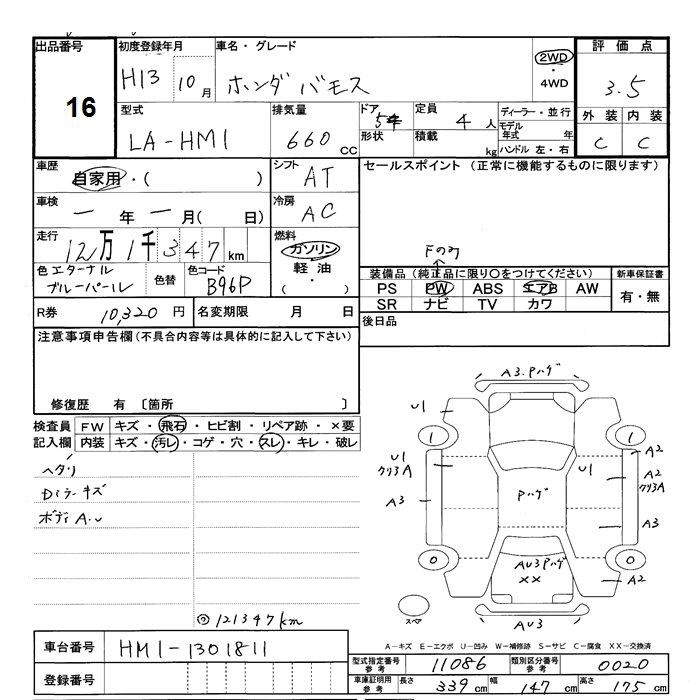 出品番号 初度登録年月 車名・グレード 評価点
16 H13 10月 ホンダ バモス 2WD・4WD 3.5
型式 排気量 ドア 定員 ディーラー・並行 外装 内装
LA-HM1 660cc 5 4人 モデル年式 年 C C
形状 積載 kg ハンドル 左・右
車歴 シフト セールスポイント (正常に機能するものに限ります)
自家用・( ) AT
車検 冷房
一年一月( 日) AC
走行 燃料
12万1千347km ガソリン Fのみ
色エターナルブルーパール 色替 色コード B96P 軽油・( )
装備品(純正品に限り○をつけてください) 新車保証書
PS PW ABS エアB AW 有・無
SR ナビ TV カワ
R券 10,320円 名変期限 月 日 後日品
注意事項申告欄(不具合内容等は具体的に記入して下さい)
修復歴 有 〔箇所 〕
検査員記入欄 FW キズ・飛石・ヒビ割・リペア跡・×要
内装 キズ・汚レ・コゲ・穴・スレ・キレ・破レ
ヘタリ
Dミラーキズ
ボディA.U
◎121347km
A3.Pハゲ
U1
1
1
A2
U1
クリアA
U1
A2
クリアA
A3
Pハゲ
A3
0
0
AU3Pハゲ
XX
A2
スペア
AU3
A-キズ E-エクボ U-凹み W-補修跡 S-サビ C-腐食 XX-交換済
車台番号 HM1-1301811
登録番号
型式指定番号 参考 11086 類別区分番号 参考 0020
車庫証明用 参考 長さ 339cm 幅 147cm 高さ 175cm